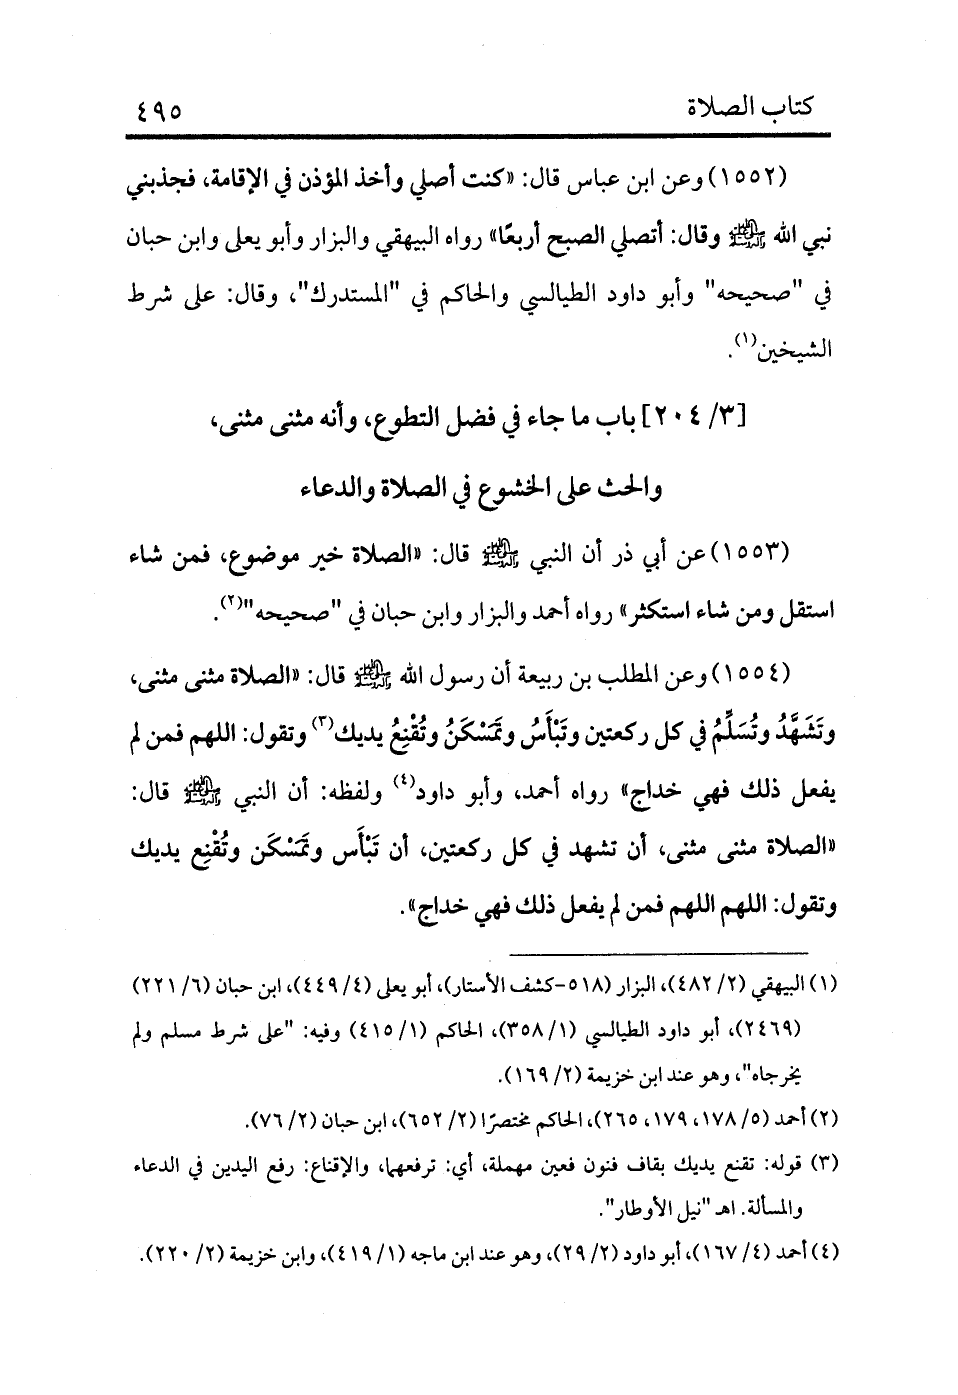 كتاب الصلاة
٤٩٥
(١٥٥٢) وعن ابن عباس قال: «كنت أصلي وأخذ المؤذن في الإقامة، فجذبني
نبي الله ﷺ وقال: أتصلي الصبح أربعًا» رواه البيهقي والبزار وأبو يعلى وابن حبان
في "صحيحه" وأبو داود الطيالسي والحاكم في "المستدرك"، وقال: على شرط
الشيخين(١).
[٣/ ٢٠٤] باب ما جاء في فضل التطوع، وأنه مثنى مثنى،
والحث على الخشوع في الصلاة والدعاء
(١٥٥٣) عن أبي ذر أن النبي ﷺ قال: «الصلاة خير موضوع، فمن شاء
استقل ومن شاء استكثر» رواه أحمد والبزار وابن حبان في "صحيحه"(٢).
(١٥٥٤) وعن المطلب بن ربيعة أن رسول الله ﷺ قال: «الصلاة مثنى مثنى،
وتَشَهَّدُ وتُسَلِّمُ في كل ركعتين وتَبْأَسُ وتَمَسْكَنُ وتُقْنِعُ يديك(٣) وتقول: اللهم فمن لم
يفعل ذلك فهي خداج» رواه أحمد، وأبو داود(٤) ولفظه: أن النبي ﷺ قال:
«الصلاة مثنى مثنى، أن تشهد في كل ركعتين، أن تَبْأَس وتَمَسْكَن وتُقْنِع يديك
وتقول: اللهم اللهم فمن لم يفعل ذلك فهي خداج».
(١) البيهقي (٢/ ٤٨٢)، البزار (٥١٨-كشف الأستار)، أبو يعلى (٤/ ٤٤٩)، ابن حبان (٦/ ٢٢١)
(٢٤٦٩)، أبو داود الطيالسي (١/ ٣٥٨)، الحاكم (١/ ٤١٥) وفيه: "على شرط مسلم ولم
يخرجاه"، وهو عند ابن خزيمة (٢/ ١٦٩).
(٢) أحمد (٥/ ١٧٨، ١٧٩، ٢٦٥)، الحاكم مختصرًا (٢/ ٦٥٢)، ابن حبان (٢/ ٧٦).
(٣) قوله: تقنع يديك بقاف فنون فعين مهملة، أي: ترفعهما، والإقناع: رفع اليدين في الدعاء
والمسألة. اهـ "نيل الأوطار".
(٤) أحمد (٤/ ١٦٧)، أبو داود (٢/ ٢٩)، وهو عند ابن ماجه (١/ ٤١٩)، وابن خزيمة (٢/ ٢٢٠).